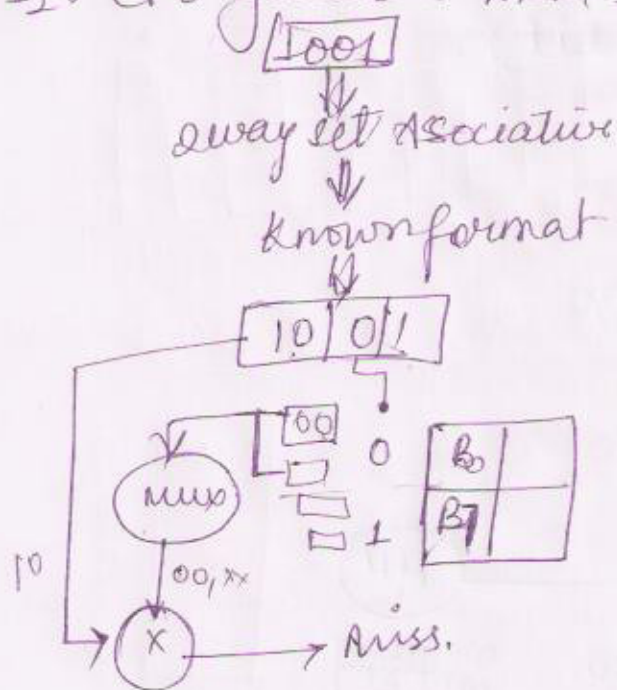 1001
2way set Associative
Known format
10 0 1
00
0
B0
MUX
1
B7
10
00, xx
X
Miss.